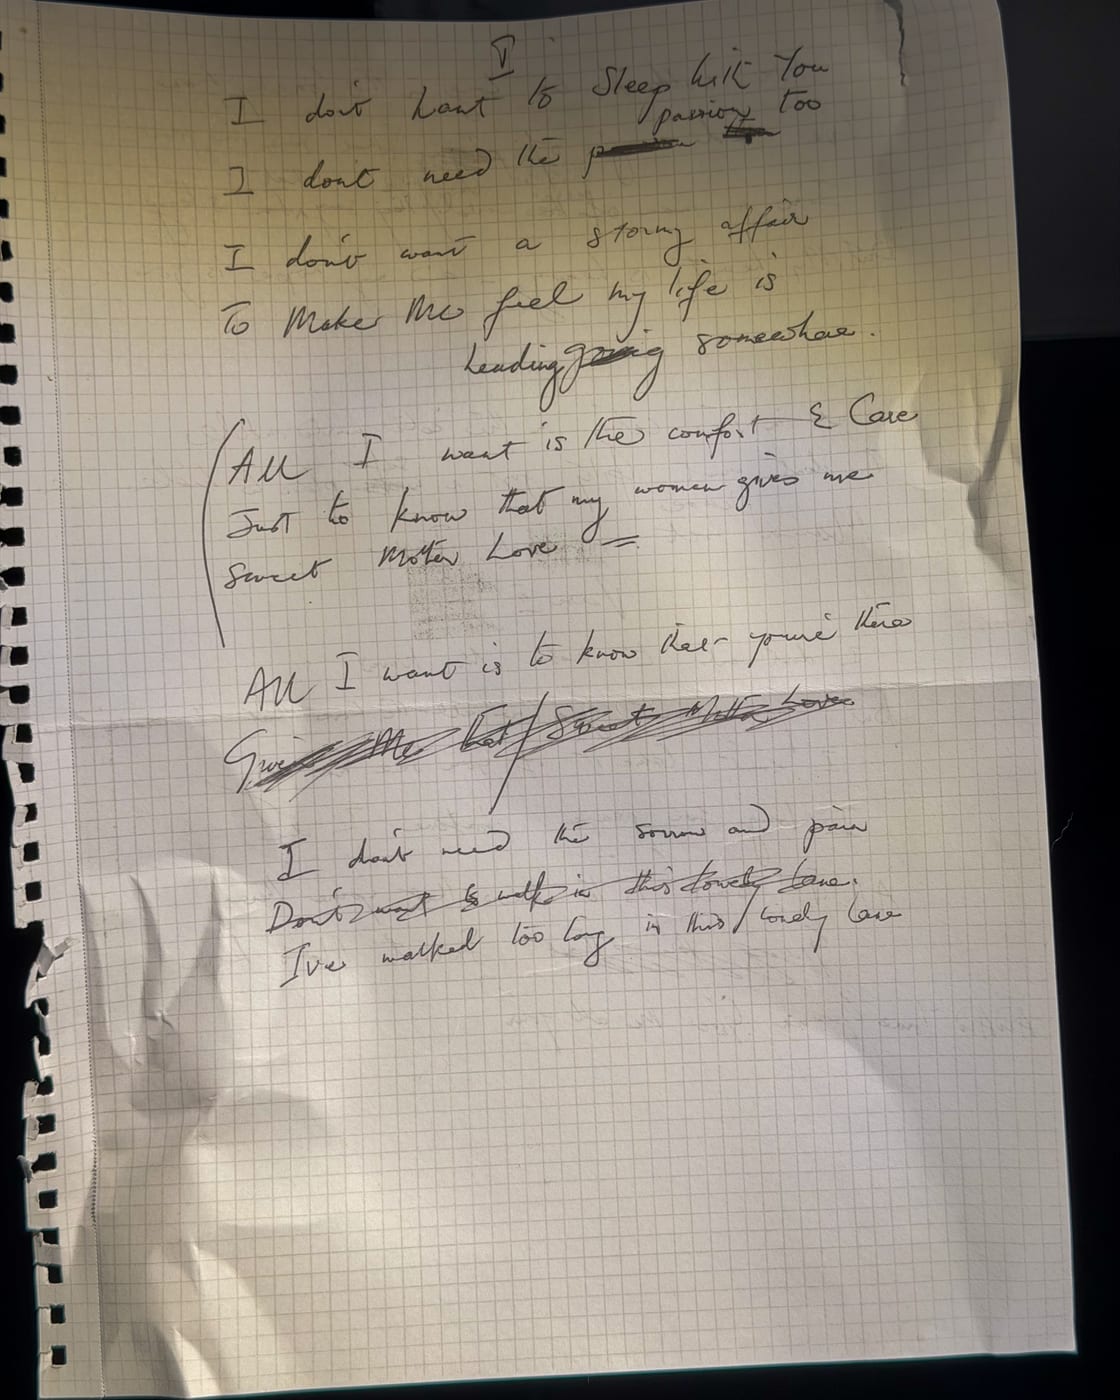 I
I don't want to sleep with you
passion too
I don't need the
I don't want a stormy affair
To Make Me feel my life is
Leading going somewhere.
All I want is the comfort & Care
Just to know that my woman gives me
Sweet Mother Love =
All I want is to know that you're there
Give Me that / Sweet Mother Love
I don't need the sorrow and pain
Don't want to walk in this lonely lane.
I've walked too long in this / lonely lane